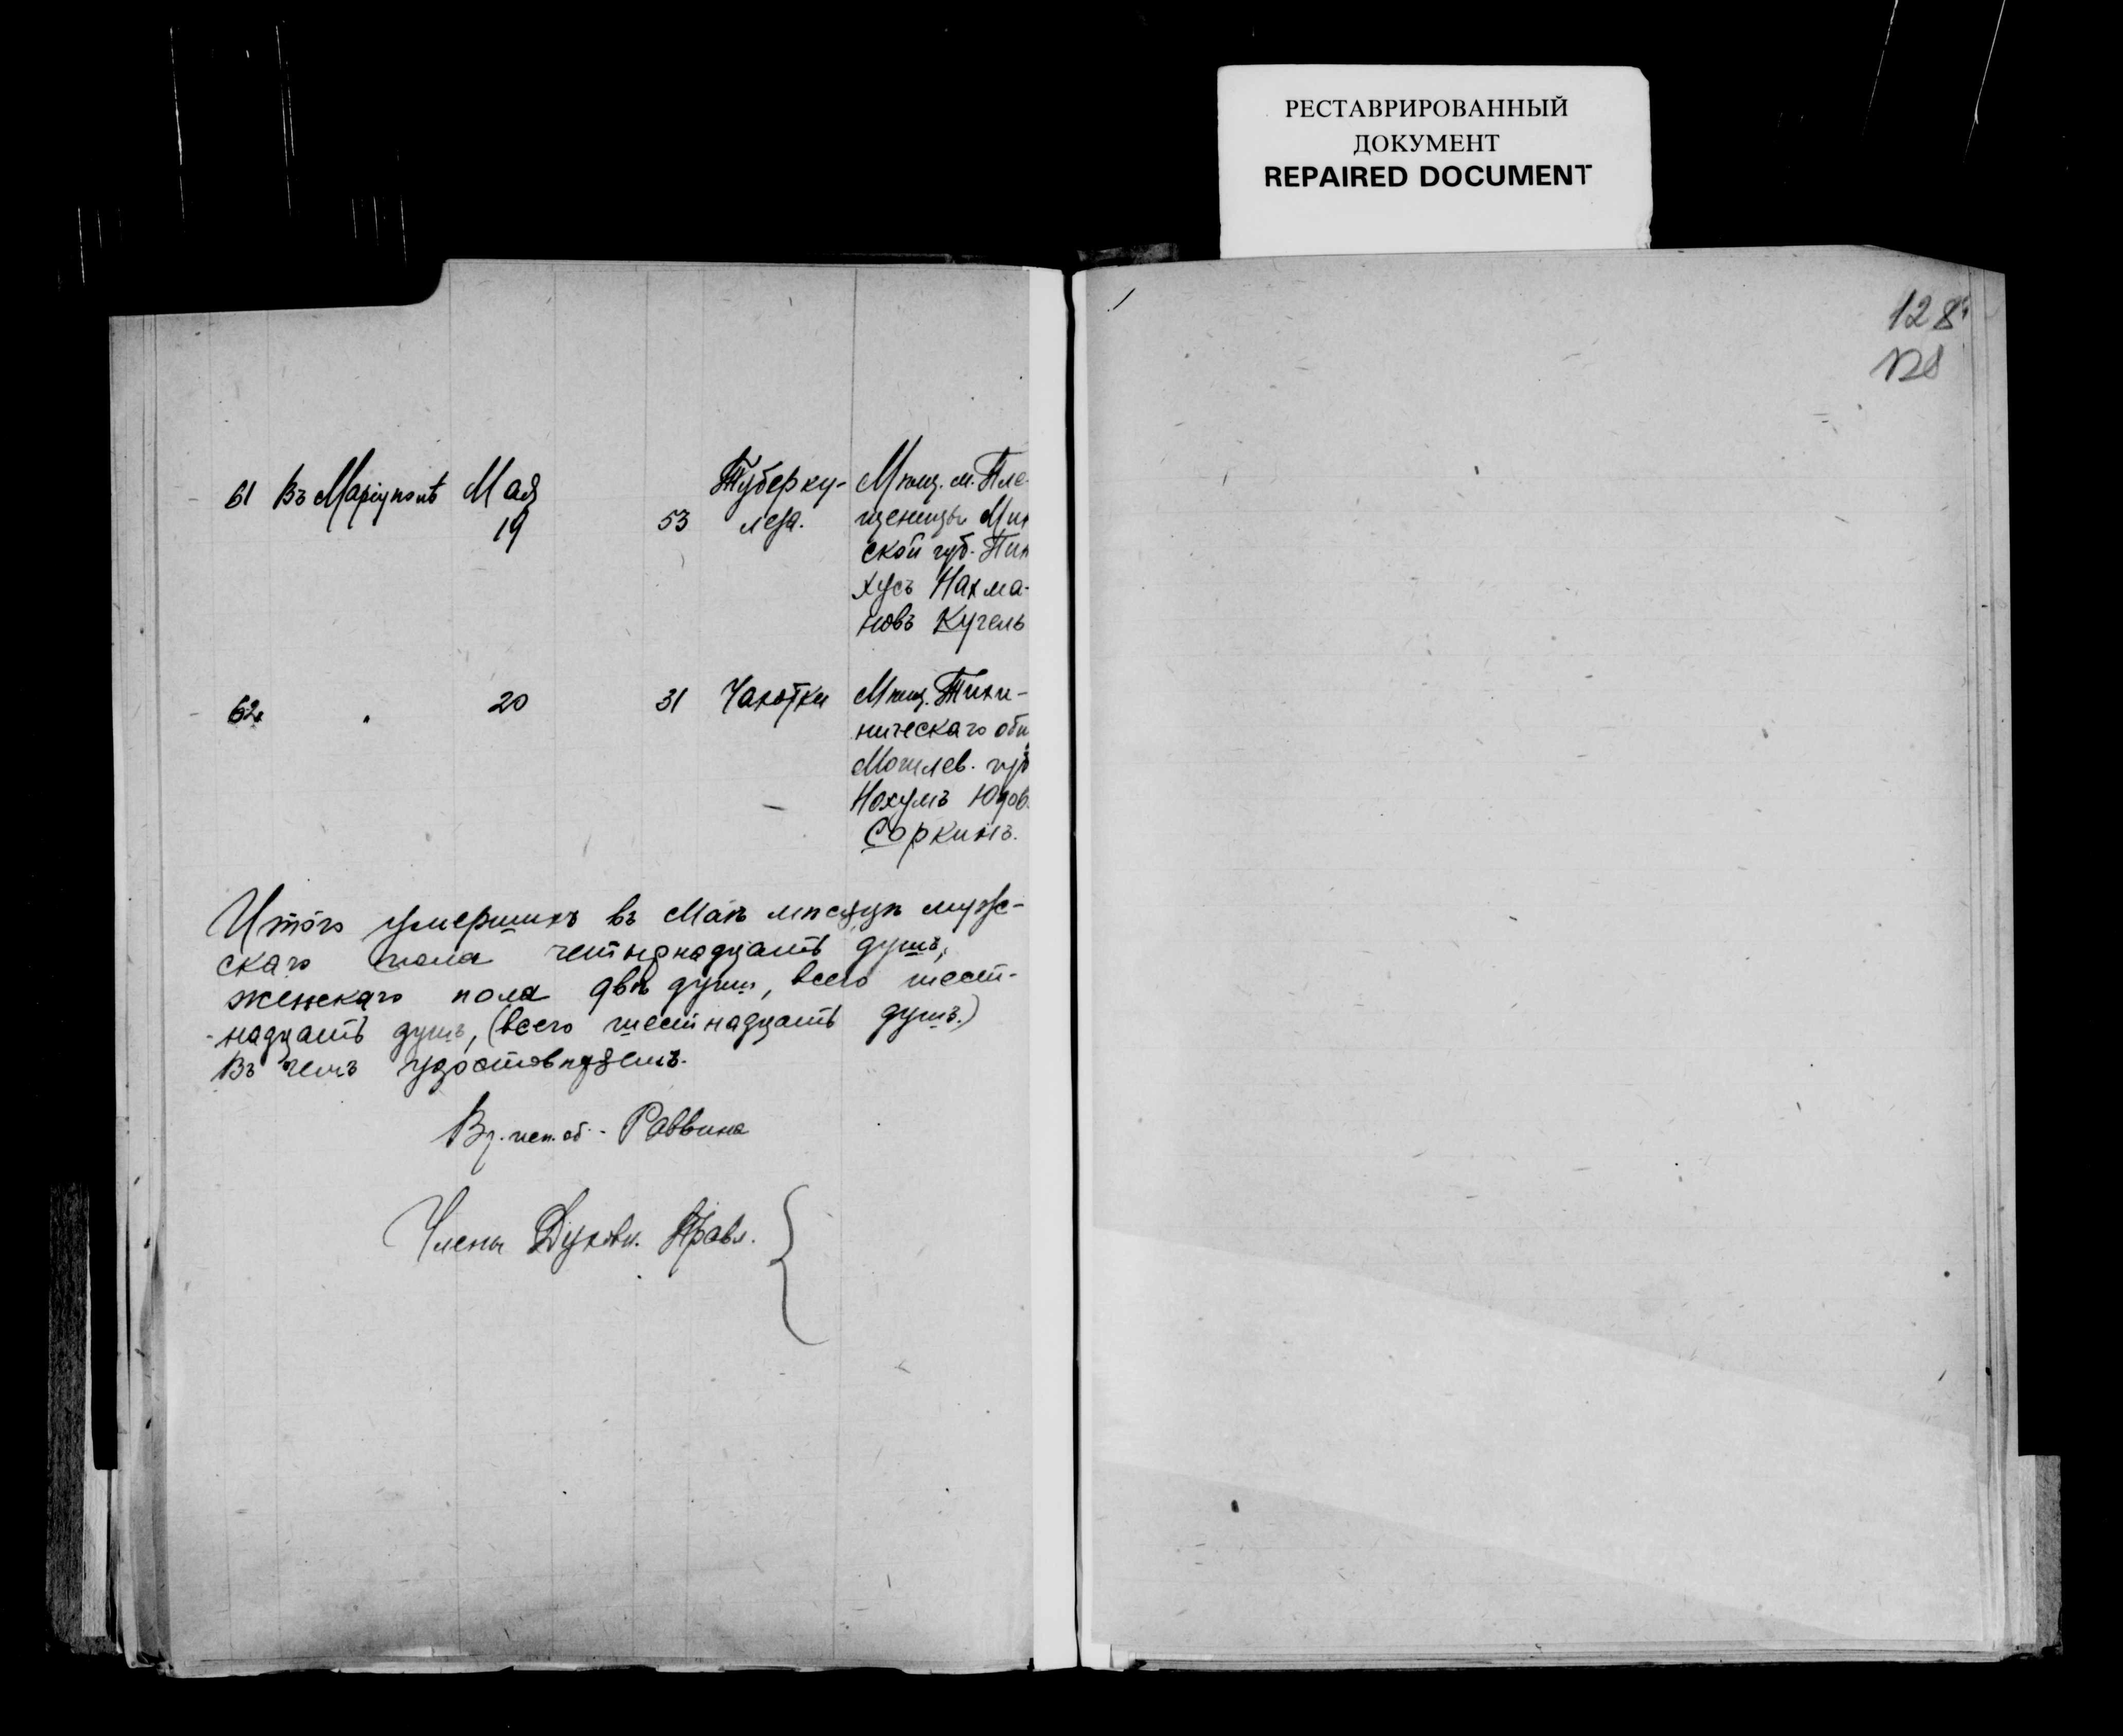 РЕСТАВРИРОВАННЫЙ
ДОКУМЕНТ
REPAIRED DOCUMENT
128
128
61 Въ Маріуполѣ Мая 19 53 Туберку-
леза.
Мѣщ. м. Пле-
щеницы Мин
ской губ. Пин
хусъ Нахма-
новъ Кугель
62 " 20 31 Чахотки
Мѣщ.
ническаго общ
Могилев. губ
Нохумъ Юдов.
Соркинъ.
Итого умершихъ въ Маѣ мѣсяцѣ муж-
скаго пола четырнадцать душъ,
женскаго пола двѣ души, всего шест-
-надцать душъ, (всего шестнадцать душъ.)
Въ чемъ удостовѣряемъ.
Вр. исп. об. - Раввина
Члены Духовн. Правл.